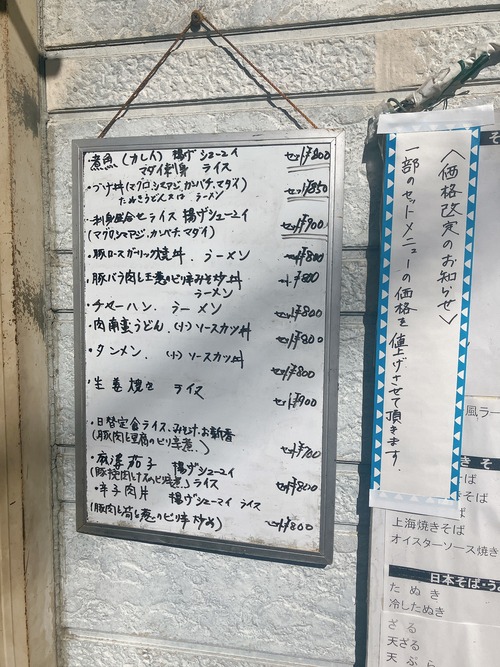 ・煮魚(カレイ) 揚げシューマイ セット¥800
マダイ刺身 ライス
・づけ丼(マグロ、シマアジ、カンパチ、マダイ) セット¥850
たぬきうどん又は ラーメン
・刺身盛合せ ライス 揚げシューマイ セット¥900
(マグロ、シマアジ、カンパチ、マダイ)
・豚ロースガーリック焼丼、ラーメン セット¥800
・豚バラ肉と玉葱のピリ辛みそ炒丼 セット¥800
ラーメン
・チャーハン、ラーメン セット¥800
・肉南蛮うどん、(小)ソースカツ丼 セット¥800
・タンメン、(小)ソースカツ丼
セット¥800
・生姜焼き ライス セット¥900
・日替定食 ライス、みそ汁、お新香
(豚肉と豆腐のピリ辛煮) セット¥700
・麻婆茄子 揚げシューマイ
(豚挽肉とナスのピリ辛煮) ライス セット¥800
・辛子肉片 揚げシューマイ ライス
(豚肉と筍と葱のピリ辛炒め) セット¥800
〈価格改定のお知らせ〉
一部のセットメニューの価格を値上げさせて頂きます。
風ラー
上海焼きそば
オイスターソース焼き
日本そば・う
たぬき
冷したぬき
ざる
天ざる
天ぷら